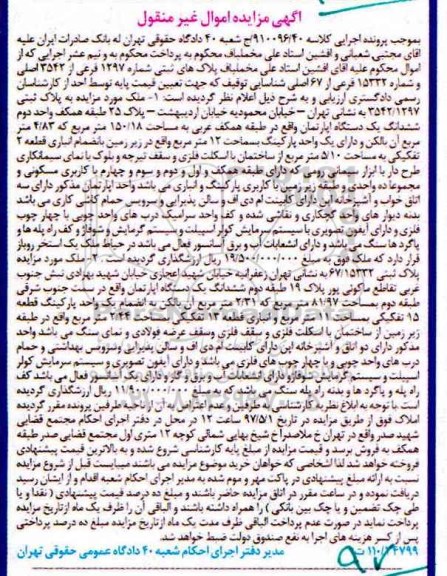 آگهی مزایده اموال غیر منقول
بموجب پرونده اجرایی کلاسه ۹۱۰۰۹۶/۴۰ج شعبه ۴۰ دادگاه حقوقی تهران له بانک صادرات ایران علیه
آقای مجتبی شعبانی و افشین استاد علی مخملباف محکوم به پرداخت محکوم به و نیم عشر اجرایی که از
اموال محکوم علیه آقای افشین استاد علی مخملباف پلاک های ثبتی شماره ۱۲۹۷ فرعی از ۳۵۴۲ اصلی
و شماره ۱۵۳۳۲ فرعی از ۶۷ اصلی شناسایی توقیف که جهت تعیین قیمت پایه توسط احد از کارشناسان
رسمی دادگستری ارزیابی و به شرح ذیل اعلام نظر گردیده است: ۱- ملک مورد مزایده به پلاک ثبتی
۳۵۴۲/۱۲۹۷ به نشانی تهران – خیابان محمودیه خیابان اردیبهشت – پلاک ۲۵ طبقه همکف واحد دوم
ششدانگ یک دستگاه آپارتمان واقع در طبقه همکف غربی به مساحت ۱۵۰/۱۸ متر مربع که ۴/۸۳ متر
مربع آن بالکن و دارای یک واحد پارکینگ بمساحت ۱۲ متر مربع واقع در زیر زمین بانضمام انباری قطعه ۲
تفکیکی به مساحت ۵/۱۰ متر مربع از ساختمان با اسکلت فلزی و سقف تیرچه و بلوک با نمای سیمانکاری
طرح دار با ابزار سیمانی رومی که دارای طبقه همکف و اول و دوم و سوم و چهارم با کاربری مسکونی و
مجموعه ده واحدی و طبقه زیرزمین با کاربری پارکینگ و انباری می باشد واحد آپارتمان مذکور دارای سه
اتاق خواب و آشپزخانه اپن دارای کابینت ام دی اف و سالن پذیرایی و سرویس حمام کاشی کاری می باشد
بدنه دیوار های واحد گچکاری و نقاشی شده و کف واحد سرامیک درب های واحد چوبی با چهار چوب
فلزی و دارای آیفون تصویری با سیستم سرمایش کولر اسپیلت و سیستم گرمایش و شوفاژ و کف راه پله ها و
پاگرد ها سنگ می باشد و دارای انشعابات آب و برق آسانسور فعال می باشد در حیاط ملک یک استخر روباز
قرار دارد که ملک فوق به مبلغ ۱۹/۵۰۰/۰۰۰/۰۰۰ ریال ارزشگذاری گردیده است ۲- ملک مورد مزایده
پلاک ثبتی ۶۷/۱۵۳۳۲ به نشانی تهران زعفرانیه خیابان شهید اعجازی خیابان شهید بهزادی نبش جنوب
غربی تقاطع ماکویی پور پلاک ۱۹ طبقه دوم ششدانگ یک دستگاه آپارتمان واقع در سمت جنوب شرقی
طبقه دوم بمساحت ۸۱/۹۷ متر مربع که ۲/۳۱ متر مربع آن بالکن به انضمام یک واحد پارکینگ قطعه
۱۵ تفکیکی بمساحت متر مربع و انباری قطعه ۱۳ تفکیکی به مساحت ۲/۴۴ متر مربع واقع در طبقه
زیر زمین از ساختمان با اسکلت فلزی و سقف فلزی وسقف عرشه فولادی و نمای سنگ می باشد واحد
مذکور دارای دو اتاق و آشپزخانه اپن دارای کابینت ام دی اف و سالن پذیرایی وسرویس بهداشتی و حمام
درب های واحد چوبی و با چهار چوب های فلزی می باشد و دارای آیفون تصویری و سیستم سرمایش کولر
اسپیلت و سیستم گرمایش شوفاژو دارای انشعابات آب وبرق و گاز و دارای یک آسانسور فعال می باشد کف
راه پله و پاگرد ها و بدنه راه پله سنگ می باشد که به مبلغ ۱۱/۹۰۰/۰۰۰/۰۰۰ ریال ارزشگذاری گردیده
است با توجه به ابلاغ نظریه کارشناسی به طرفین وعدم اعتراض به آن از ناحیه طرفین پرونده مقرر گردیده
املاک فوق از طریق مزایده در تاریخ ۹۷/۵/۱ ساعت ۱۲ در محل در دفتر اجرای احکام مجتمع قضایی
شهید صدر واقع در تهران خ ملاصدرا خ شیخ بهایی شمالی کوچه ۱۲ متری اول مجتمع قضایی صدر طبقه
همکف به فروش برسد و قیمت مزایده از مبلغ پایه کارشناسی شروع شده و به بالاترین قیمت پیشنهادی
فروخته خواهد شد لذا اشخاصی که خواهان خرید موضوع مزایده می باشند میبایست قبل از شروع مزایده
نسبت به ارائه مبلغ پیشنهادی در پاکت مهر و موم شده به مدیر اجرای احکام شعبه اقدام و از ایشان رسید
دریافت نموده و در ساعت مقرر در اتاق مزایده حاضر باشند و مبلغ ده درصد قیمت پیشنهادی ( نقدا و یا
طی چک تضمین و یا چک بین بانکی ) را همراه داشته باشند و الباقی آن را ظرف یک ماه ازتاریخ مزایده
پرداخت نماید در صورت عدم پرداخت الباقی ظرف مدت یک ماه ازتاریخ مزایده مبلغ ده درصد پرداختی
پس از کسر هزینه های اجرا به نفع صندوق دولت ضبط خواهد شد.
۱۱۰/۲۴۷۹۹ ت مدیر دفتر اجرای احکام شعبه ۴۰ دادگاه عمومی حقوقی تهران